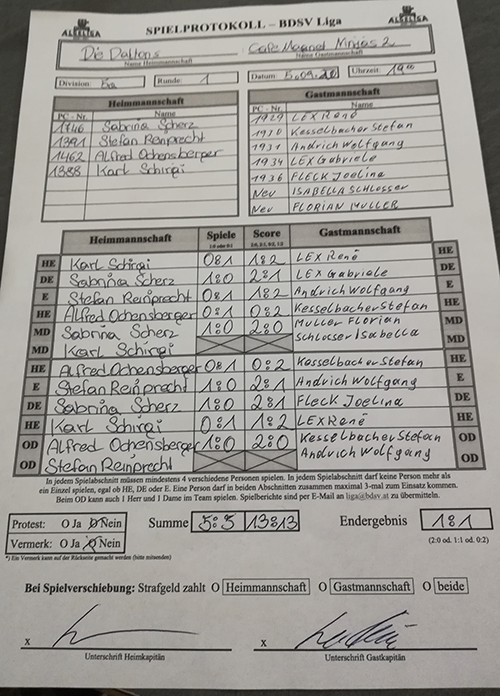 SPIELPROTOKOLL – BDSV Liga
Die Daltons
Name Heimmannschaft
Name Gastmannschaft
Division: Runde: 1 Datum: 5.09.20 Uhrzeit: 19⁰⁰
Heimmannschaft
PC - Nr. Name
1746 Sabrina Scherz
1391 Stefan Reinprecht
1462 Alfred Ochensberger
1388 Karl Schirgi
Gastmannschaft
PC - Nr. Name
1929 LEX René
1930 Kesselbacher Stefan
1931 Andrich Wolfgang
1934 LEX Gabriele
1936 FLECK Joelina
Neu ISABELLA SCHLOSSER
Neu FLORIAN MULLER
Heimmannschaft Spiele Score Gastmannschaft
1:0 oder 0:1 2:0, 2:1, 0:2, 1:2
HE Karl Schirgi 0:1 1:2 LEX René HE
DE Sabrina Scherz 1:0 2:1 LEX Gabriele DE
E Stefan Reinprecht 0:1 1:2 Andrich Wolfgang E
HE Alfred Ochensberger 0:1 0:2 Kesselbacher Stefan HE
MD Sabrina Scherz 1:0 2:0 Muller Florian MD
MD Karl Schirgi Schlosser Isabella MD
HE Alfred Ochensberger 0:1 0:2 Kesselbacher Stefan HE
E Stefan Reinprecht 1:0 2:1 Andrich Wolfgang E
DE Sabrina Scherz 1:0 2:1 Fleck Joelina DE
HE Karl Schirgi 0:1 1:2 LEX René HE
OD Alfred Ochensberger 1:0 2:0 Kesselbacher Stefan OD
OD Stefan Reinprecht Andrich Wolfgang OD
In jedem Spielabschnitt müssen mindestens 4 verschiedene Personen spielen. In jedem Spielabschnitt darf keine Person mehr als
ein Einzel spielen, egal ob HE, DE oder E. Eine Person darf in beiden Abschnitten zusammen maximal 3-mal zum Einsatz kommen.
Beim OD kann auch 1 Herr und 1 Dame im Team spielen. Spielberichte sind per E-Mail an liga@bdsv.at zu übermitteln.
Protest: O Ja O Nein Summe 5:5 13:13 Endergebnis 1:1
Vermerk: O Ja O Nein (2:0 od. 1:1 od. 0:2)
*) Ein Vermerk kann auf der Rückseite gemacht werden (bitte mitsenden)
Bei Spielverschiebung: Strafgeld zahlt O Heimmannschaft O Gastmannschaft O beide
x x
Unterschrift Heimkapitän Unterschrift Gastkapitän